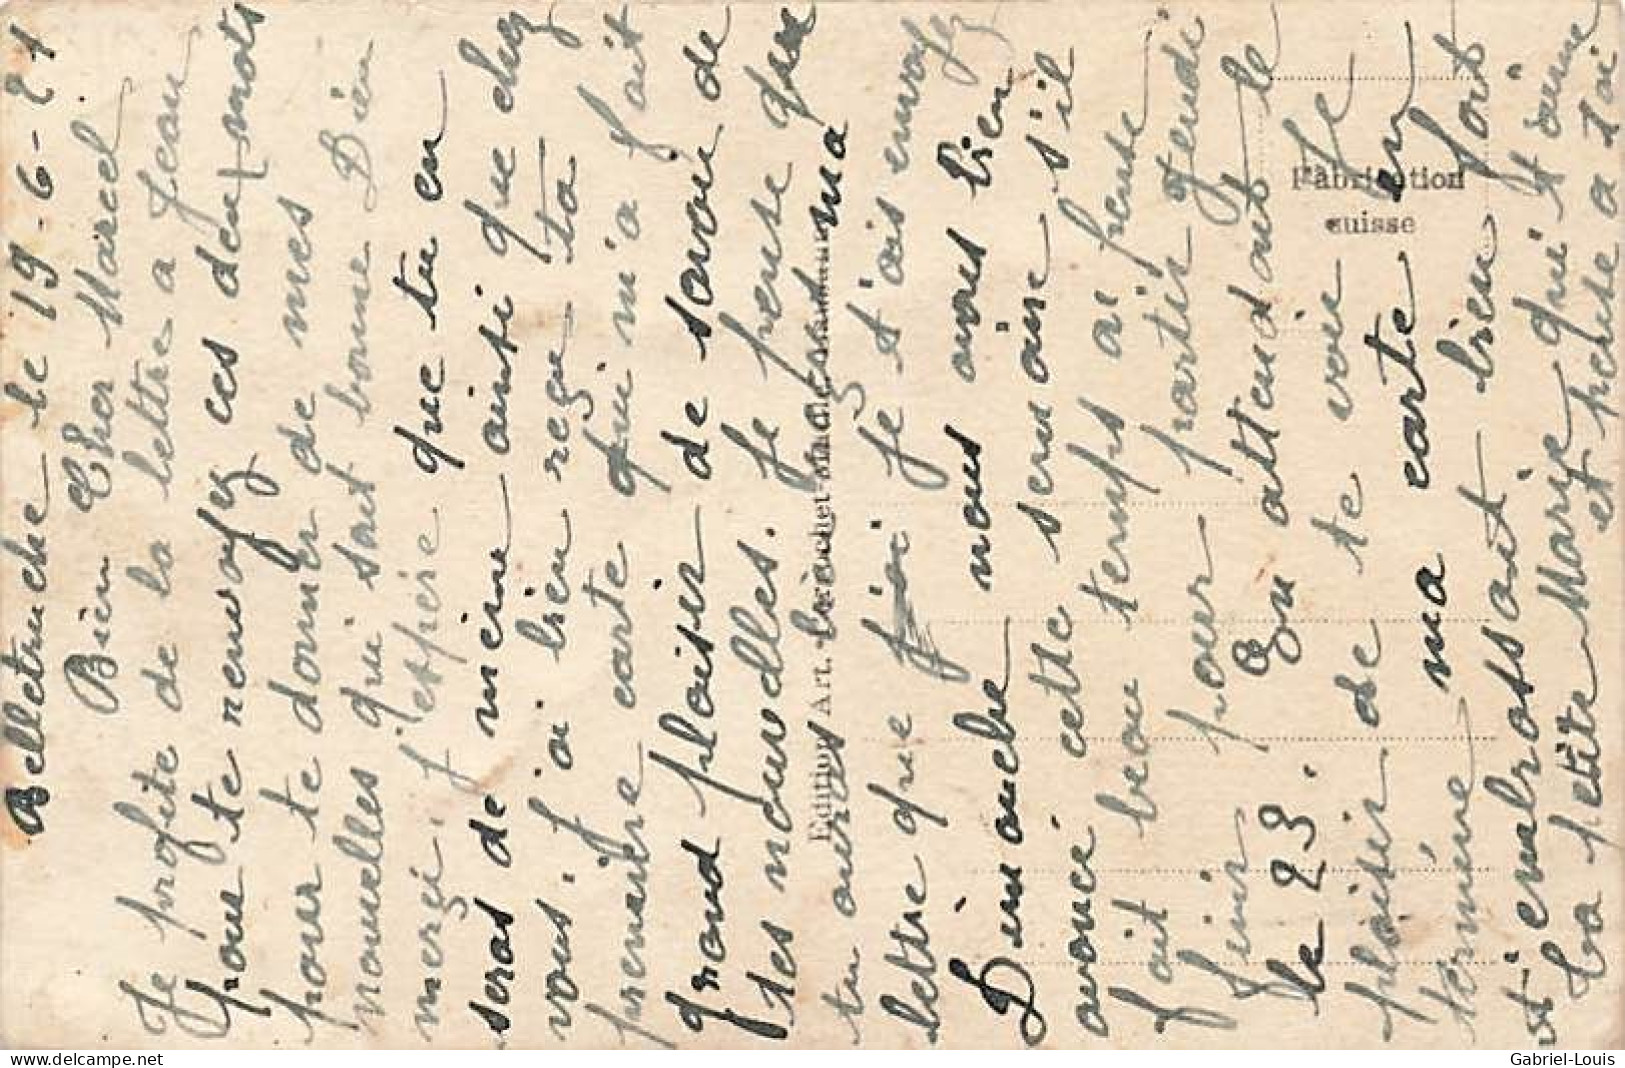 Belletruche le 19-6-21
Bien Cher Marcel
Je profite de la lettre a Jean
pour te renvoyez ces deux mots
pour te donner de mes
nouvelles qui sont bonne Dieu
merçi. J'espère que tu en
seras de même ainsi que chez
vous. J'ai bien reçu ta
première carte qui m'a fait
grand plaisir de savoir de
tes nouvelles. Je pense que
tu auras bien reçu ma
lettre que je t'ais envoyez
Dimanche nous avons bien
avancé cette semaine s'il
fait beau temps ai pense
finir pour partir Jeudi
le 23. En attendant le
plaisir de te voir Je
termine ma carte en
t'embrassant bien fort
La petite Marie qui t'aime
et pense a toi
Edition Art.
Fabrication
suisse
Gabriel-Louis